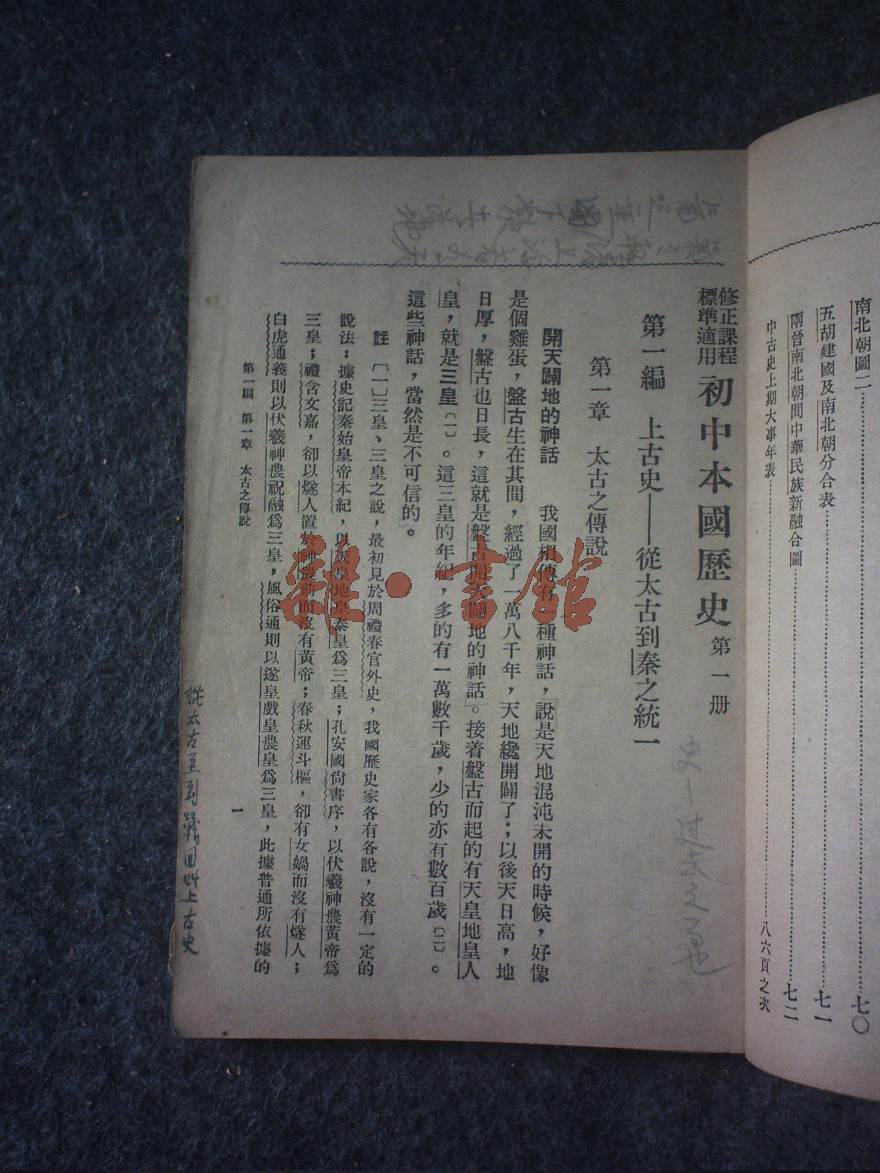 南北朝圖二⋯⋯七〇
五胡建國及南北朝分合表⋯⋯七一
兩晉南北朝間中華民族新融合圖⋯⋯七二
中古史上期大事年表⋯⋯八六頁之次
修正課程
標準適用
初中本國歷史 第一册
第一編 上古史——從太古到秦之統一
第一章 太古之傳說
開天闢地的神話 我國相傳有一種神話，說是天地混沌未開的時候，好像
是個雞蛋，盤古生在其間，經過了一萬八千年，天地纔開闢了；以後天日高，地
日厚，盤古也日長，這就是盤古開天闢地的神話。接着盤古而起的有天皇地皇人
皇，就是三皇〔一〕。這三皇的年紀，多的有一萬數千歲，少的亦有數百歲〔二〕。
這些神話，當然是不可信的。
註 〔一〕三皇、三皇之說，最初見於周禮春官外史，我國歷史家各有各說，沒有一定的
說法；據史記秦始皇帝本紀，以天皇地皇泰皇爲三皇；孔安國尙書序，以伏羲神農黃帝爲
三皇；禮含文嘉，卻以燧人置於神農前而沒有黃帝；春秋運斗樞，卻有女媧而沒有燧人；
白虎通義則以伏羲神農祝融爲三皇，風俗通則以遂皇戲皇農皇爲三皇，此據普通所依據的
第一編 第一章 太古之傳說
一
史—过去之事也
從太古至到戰国叫上古史
雜·書館